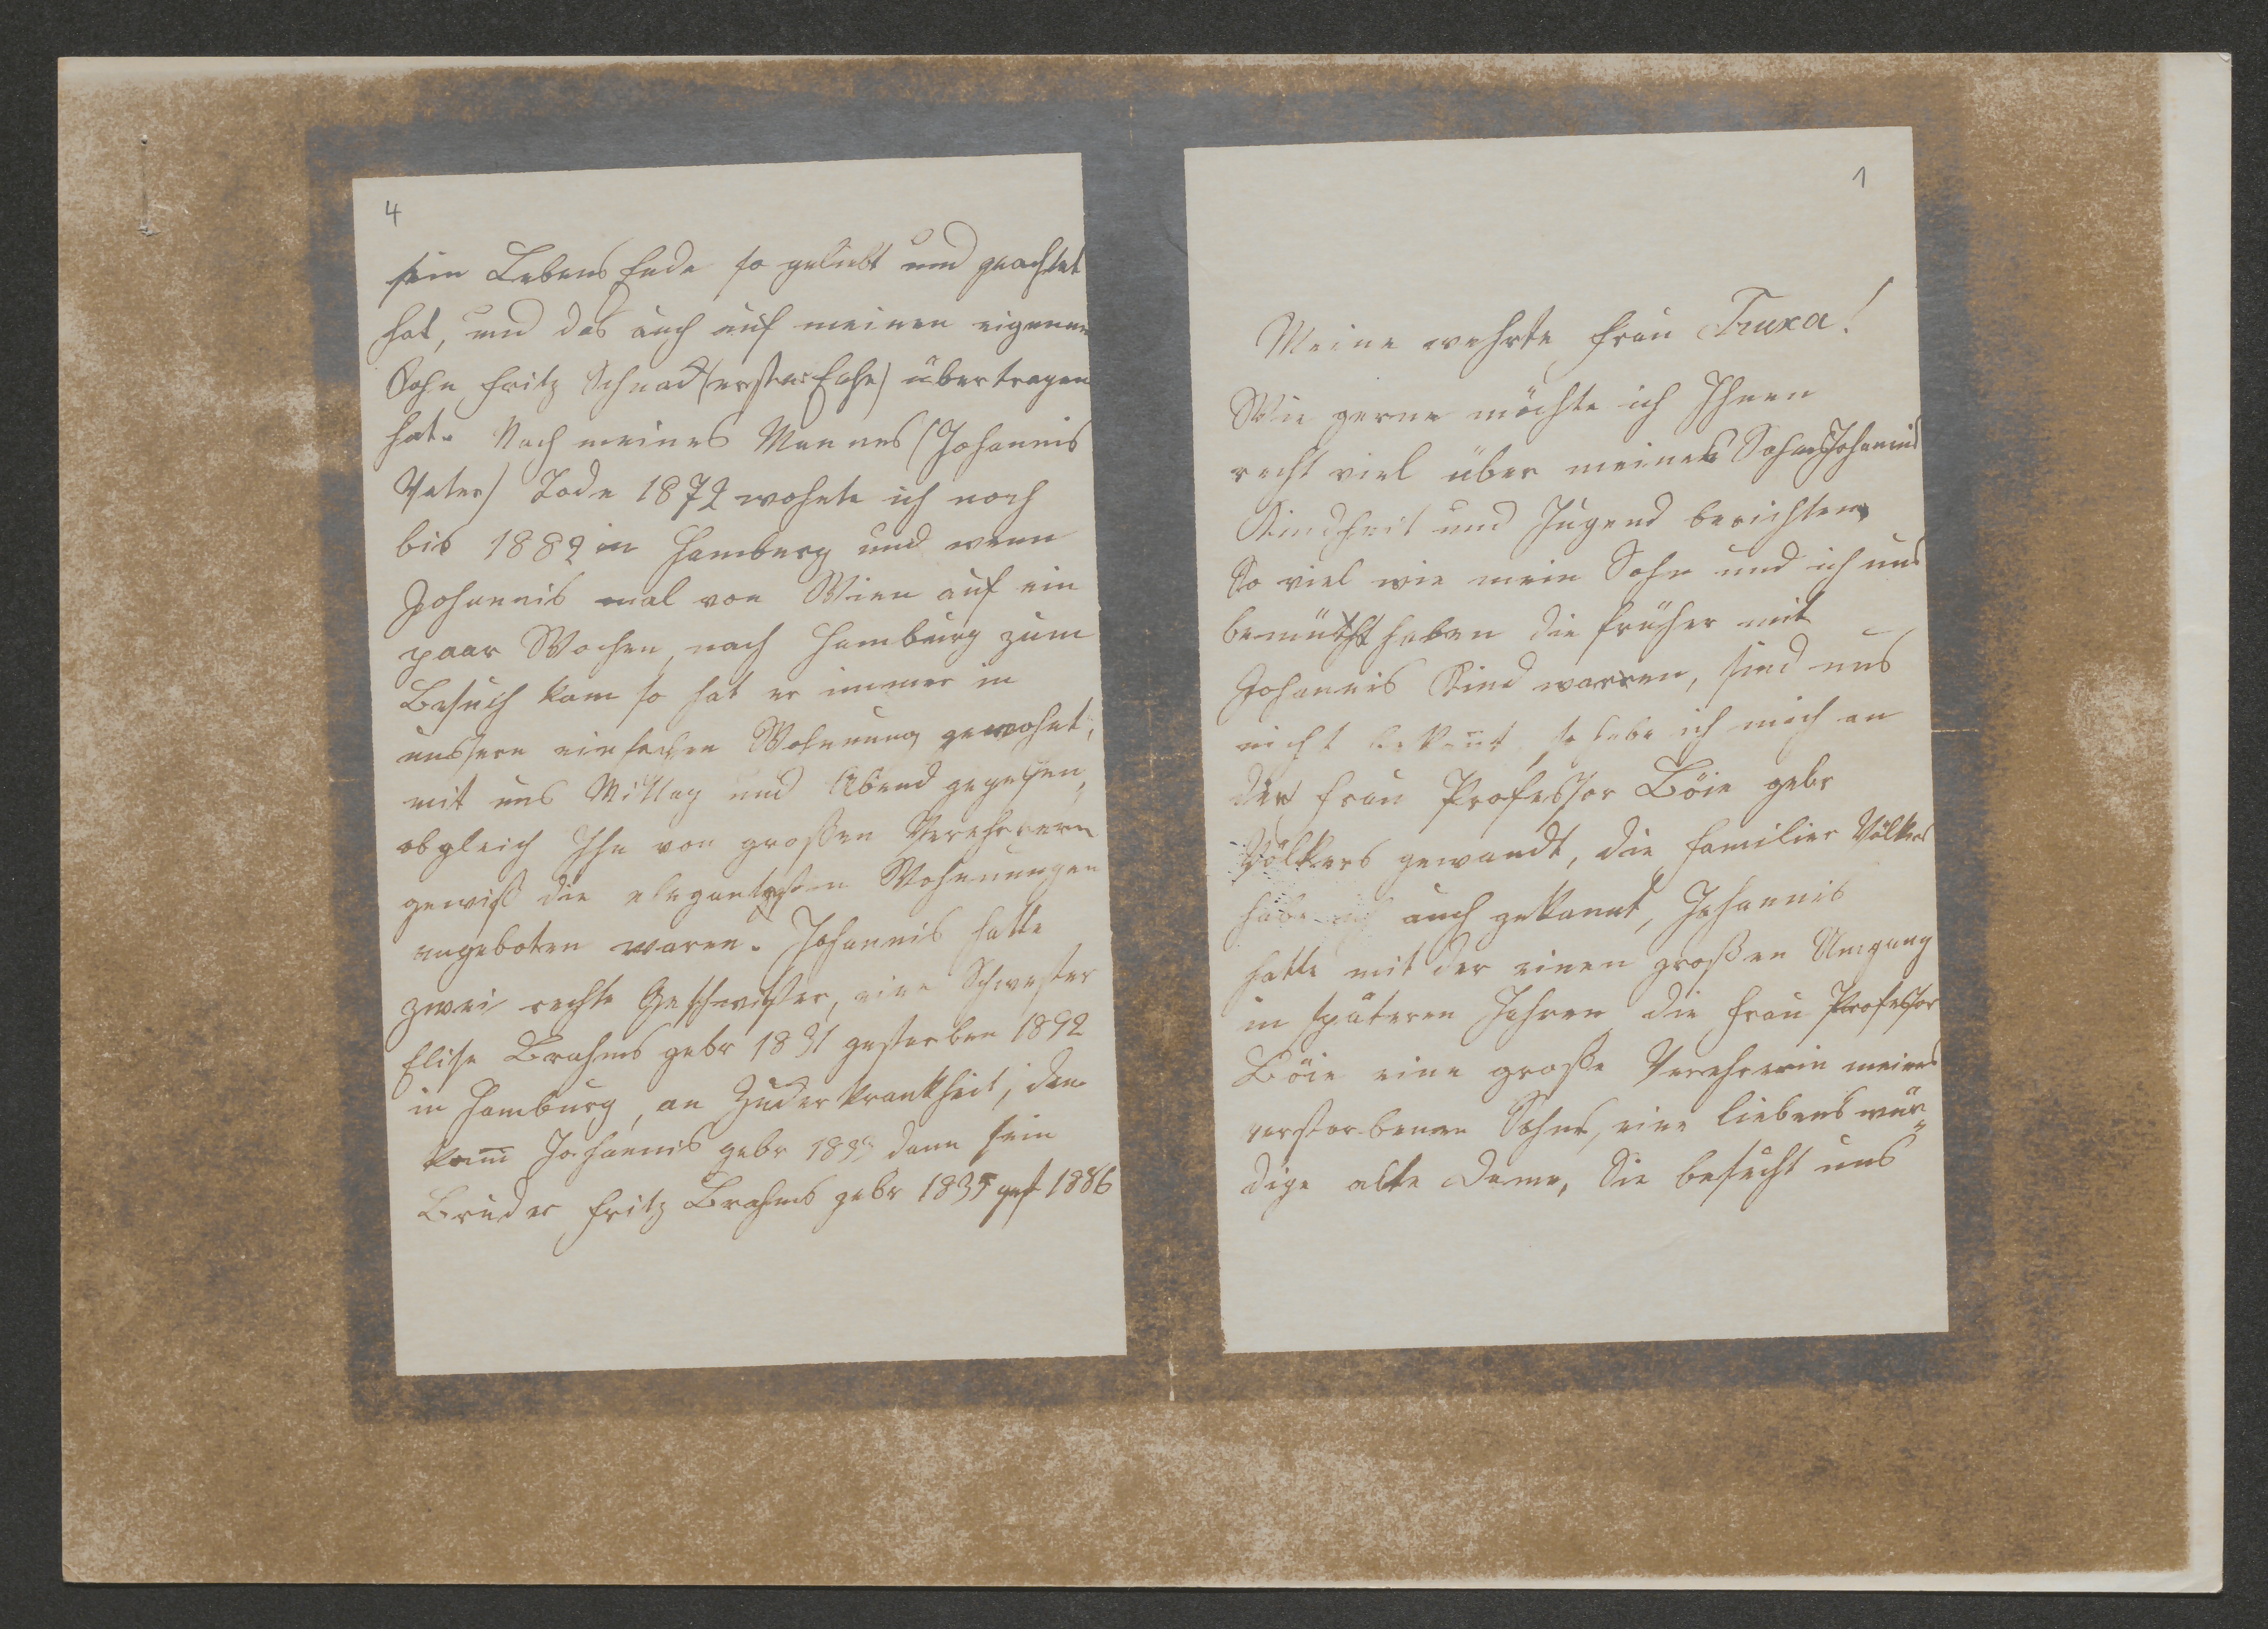 4
sein Lebens Ende so geliebt und geachtet
hat, und das auch auf meinen eigenen
Sohn Fritz Schnack (erster Ehe) übertragen
hat. Nach meines Mannes (Johannis
Vater) Tode 1872 wohnte ich noch
bis 1882 in Hamburg und wenn
Johannis mal von Wien auf ein
paar Wochen, nach Hamburg zum
Besuch kam so hat er immer in
unssern einfachen Wohnung gewohnt,
mit uns Mittag und Abend gegessen,
obgleich Ihn von großen Verehrern
gewiß die elegantesten Wohnungen
angeboten waren. Johannis hatte
zwei rechte Geschwister, eine Schwester
Elise Brahms gebr 1831 gestorben 1892
in Hamburg, an Zuckerkrankheit, dan
kam Johannis gebr 1833 dann sein
Bruder Fritz Brahms gebr 1835 gest 1886
1
Meine wehrte Frau Truxa!
Wie gerne möchte ich Ihnen
recht viel über meines Sohns Johannis
Kindheit und Jugend berichten,
So viel wie mein Sohn und ich uns
bemüht haben die früher mit
Johannis Kind warren, sind uns
nicht bekant, so habe ich mich an
der Frau Professor Böie gebr
Völkers gewandt, die Familier Völkers
habe ich auch gekannt, Johannis
hatte mit der einen großen Umgang
in späteren Jahren die Frau Professor
Böie eine große Verehrerin meines
verstorbenen Sohns, eine liebenswür„
dige alte Dame, Sie besucht uns